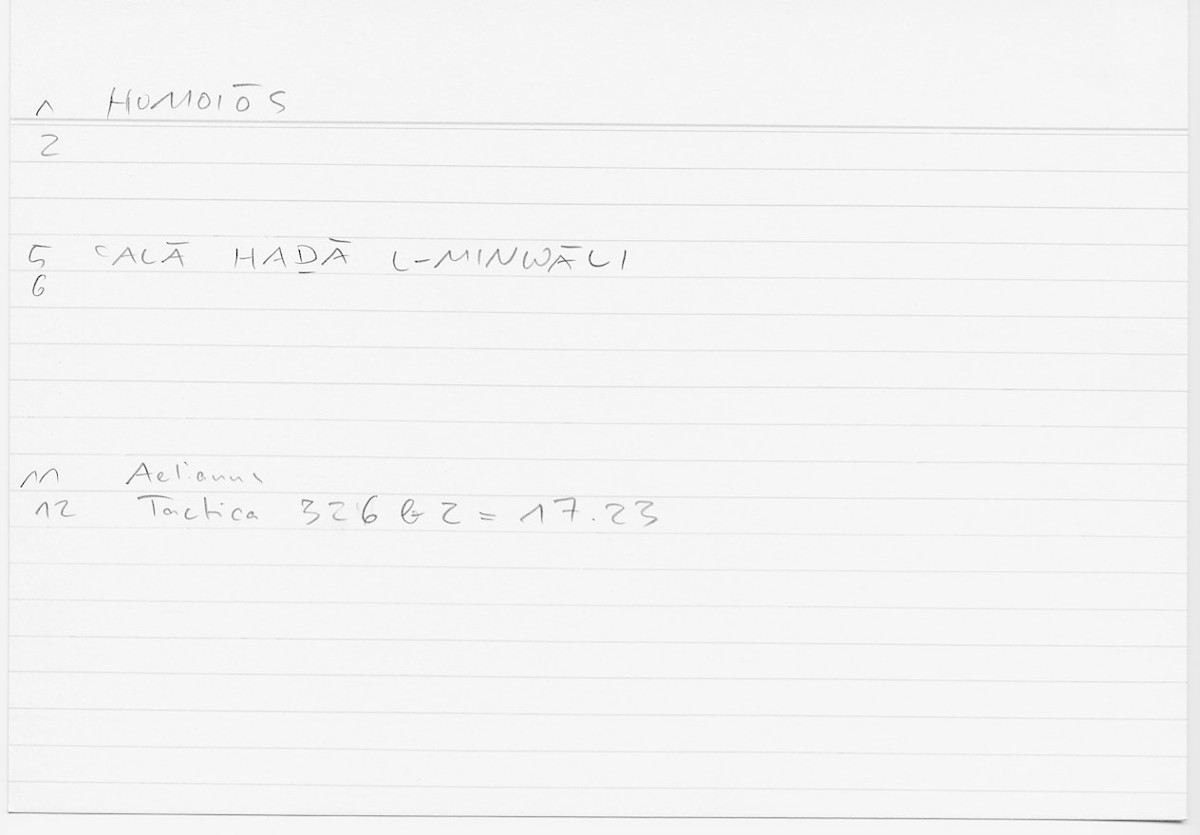 1 HOMOIŌS
2
5 ʿALĀ HAḎĀ L-MINWĀLI
6
11 Aelianus
12 Tactica 326 b 2 = 17.23